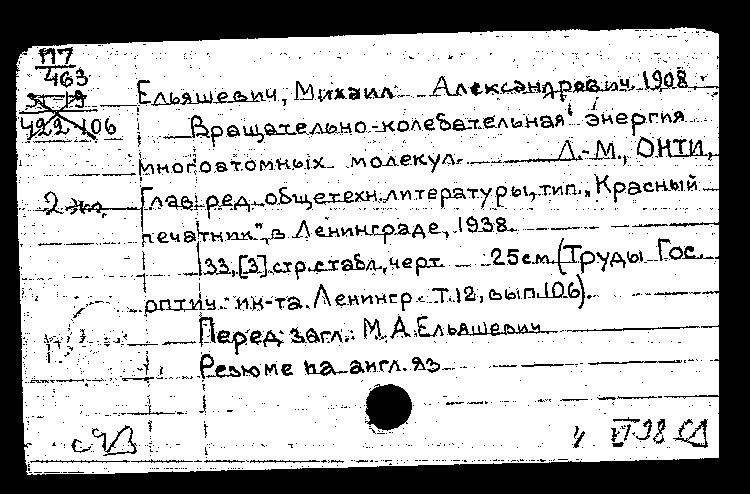 П7
463
Ельяшевич, Михаил Александрович 1908 -
422-106
Вращательно-колебательная энергия
многоатомных молекул. Л.-М., ОНТИ,
2 экз.
Глав. ред. общетехн. литературы, тип. „Красный
печатник", в Ленинграде, 1938.
33, [3] стр. с табл., черт. 25 см (Труды Гос.
оптич. ин-та. Ленингр. Т. 12, вып. 106).
Перед загл.: М. А. Ельяшевич
Резюме на англ. яз.
VI 38